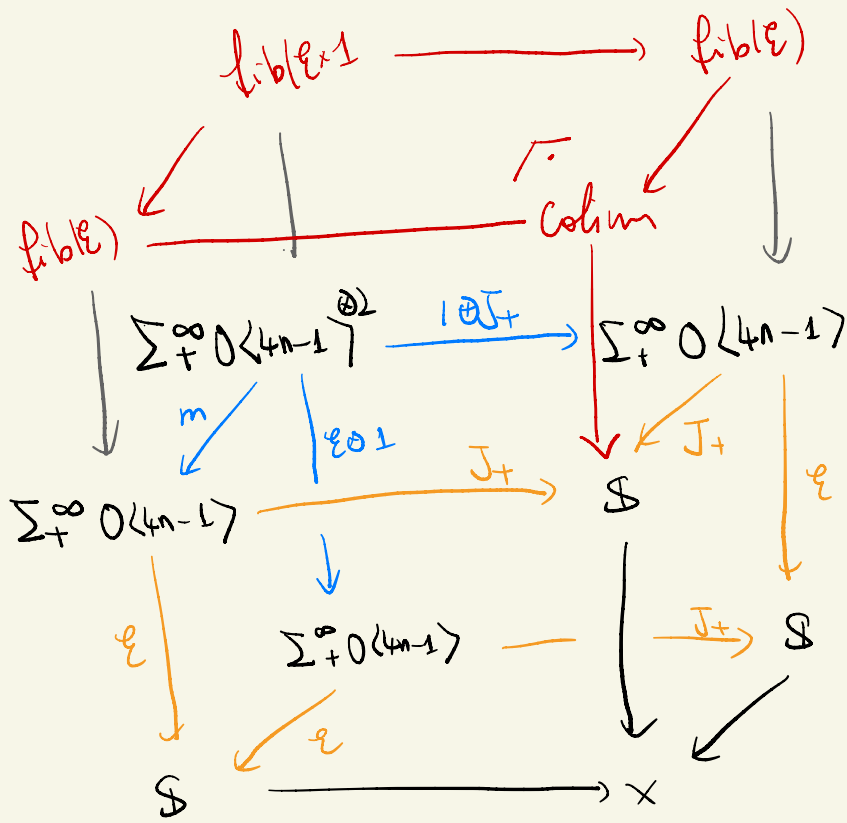 fib(ε×1 fib(ε)
fib(ε) Colim
Σ₊^∞ O⟨4n-1⟩^⊗2 1⊗J₊ Σ₊^∞ O⟨4n-1⟩
m ε⊗1 J₊ J₊
Σ₊^∞ O⟨4n-1⟩ 𝕊 ε
ε Σ₊^∞ O⟨4n-1⟩ J₊ 𝕊
ε
𝕊 X